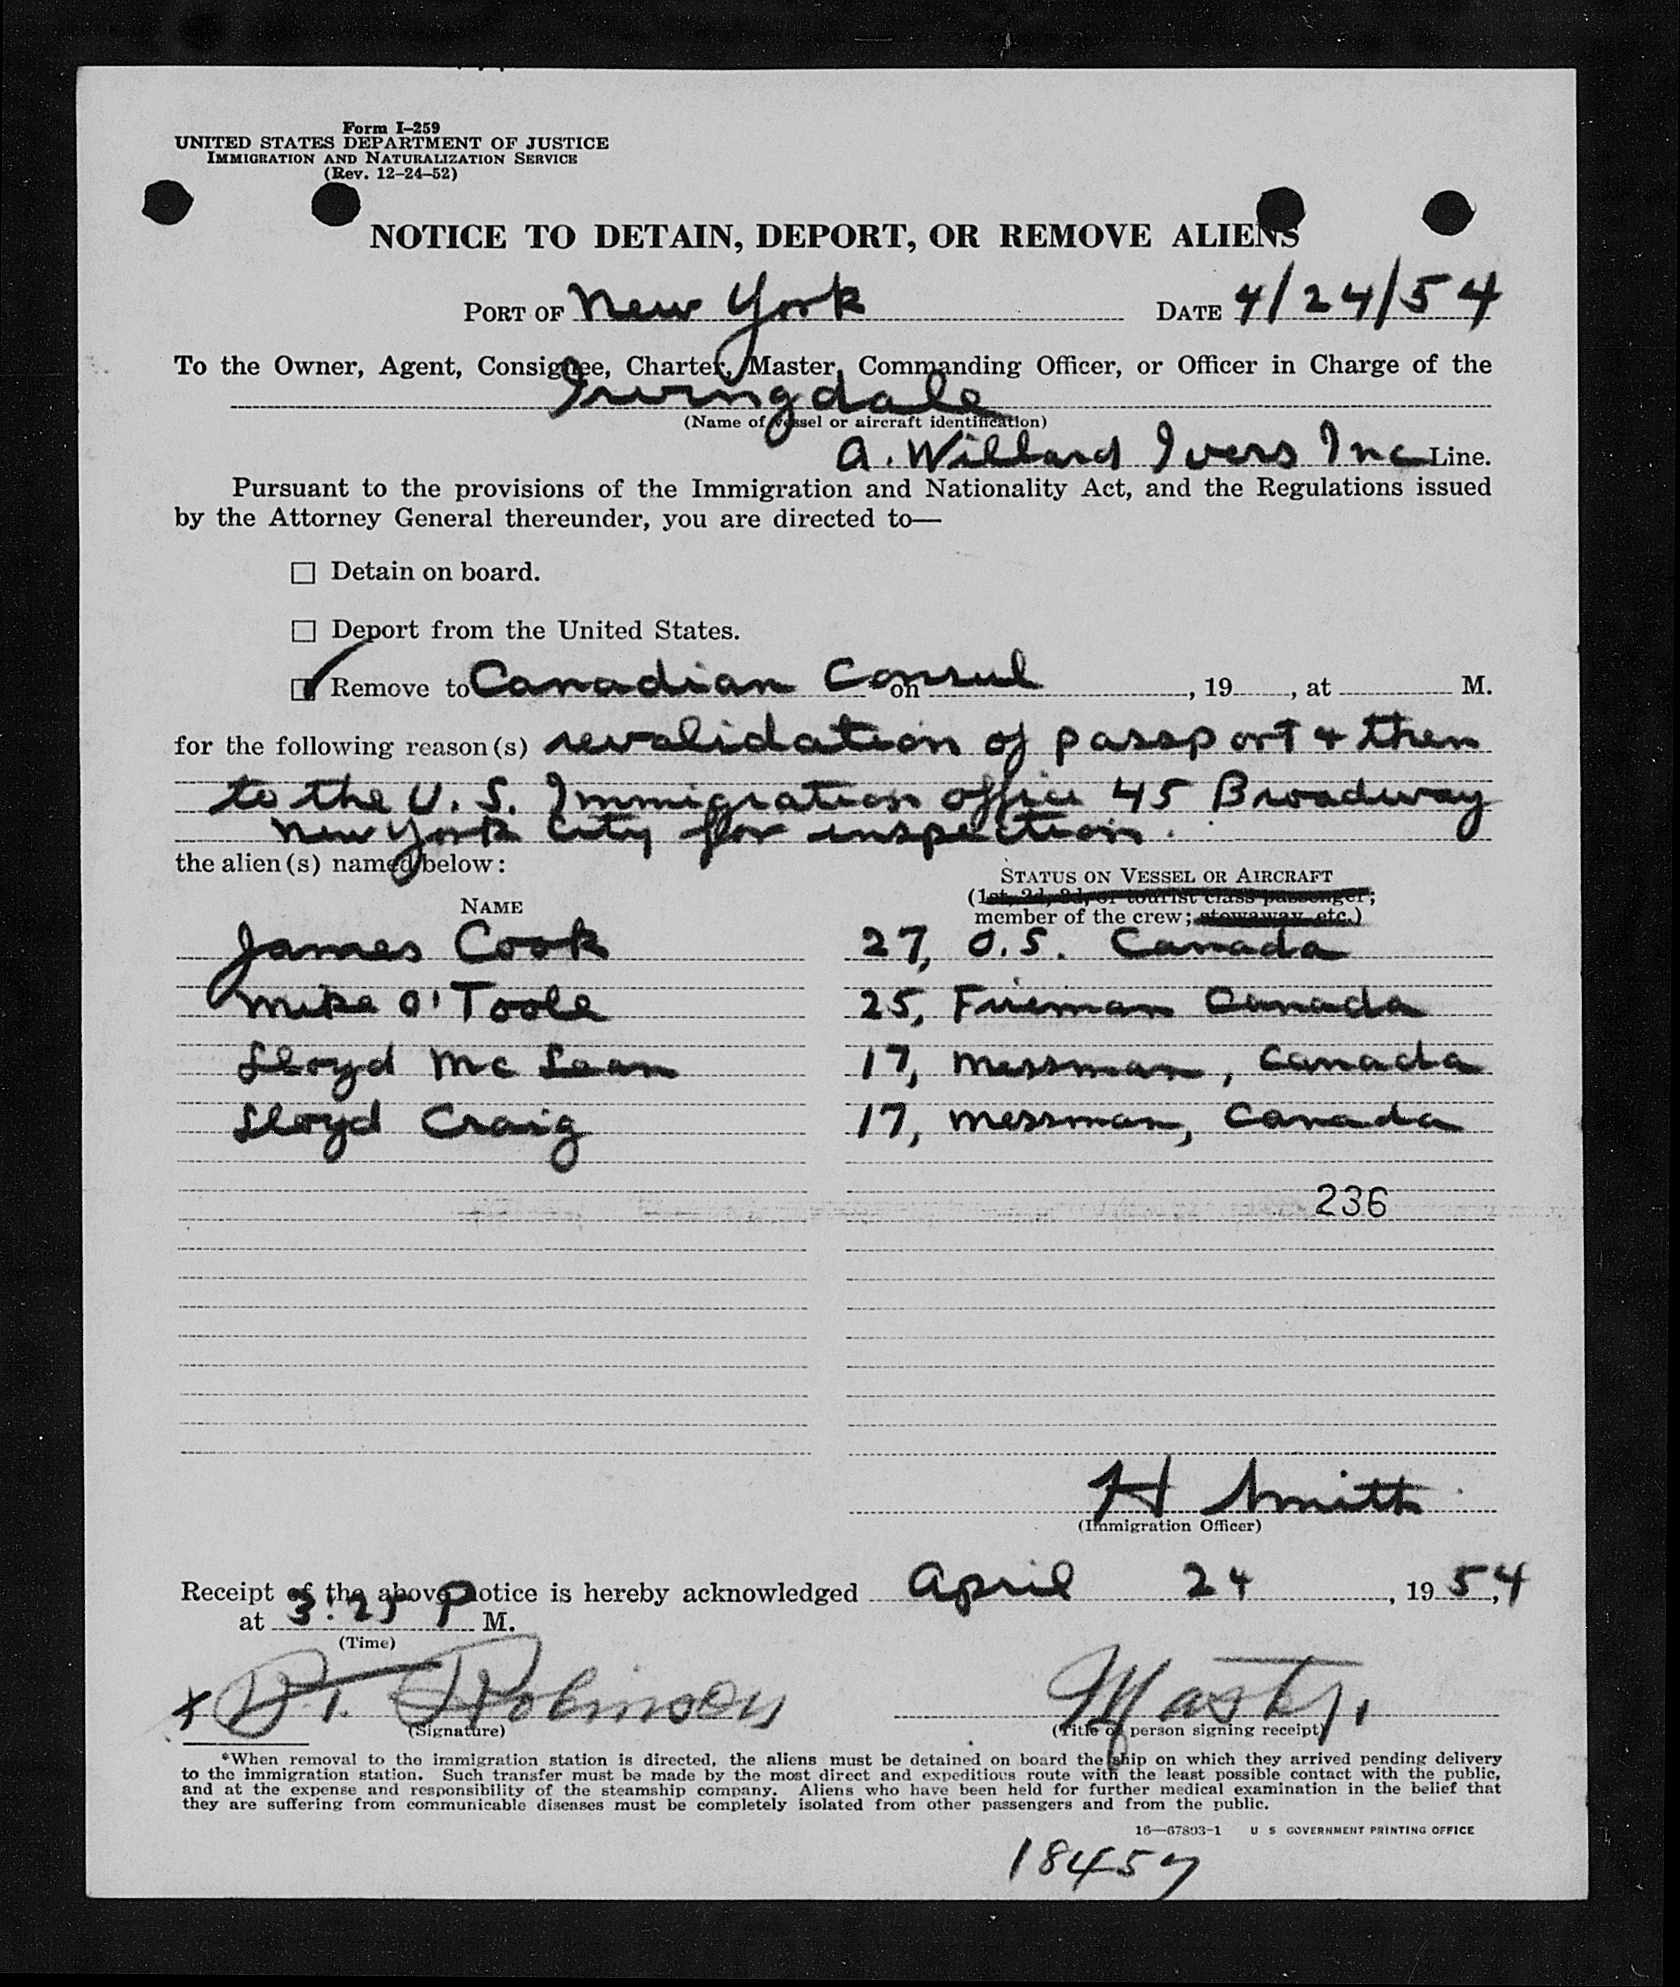 Form I-259
UNITED STATES DEPARTMENT OF JUSTICE
IMMIGRATION AND NATURALIZATION SERVICE
(Rev. 12-24-52)
NOTICE TO DETAIN, DEPORT, OR REMOVE ALIENS
PORT OF New York DATE 4/24/54
To the Owner, Agent, Consignee, Charter, Master, Commanding Officer, or Officer in Charge of the
Irvingdale
(Name of vessel or aircraft identification)
A. Willard Ivers Inc Line.
Pursuant to the provisions of the Immigration and Nationality Act, and the Regulations issued
by the Attorney General thereunder, you are directed to—
☐ Detain on board.
☐ Deport from the United States.
☑ Remove to Canadian Consul on , 19 , at M.
for the following reason(s) revalidation of passport & then
to the U.S. Immigration office 45 Broadway
New York City for inspection.
the alien(s) named below:
STATUS ON VESSEL OR AIRCRAFT
(1st, 2d, 3d, or tourist class passenger;
NAME
member of the crew; stowaway, etc.)
James Cook 27, O.S. Canada
Mike O'Toole 25, Fireman Canada
Lloyd McLean 17, Messman, Canada
Lloyd Craig 17, Messman, Canada
236
H Smith
(Immigration Officer)
Receipt of the above notice is hereby acknowledged April 24, 1954,
at 3:25 P M.
(Time)
x Robinson Master.
(Signature) (Title of person signing receipt)
*When removal to the immigration station is directed, the aliens must be detained on board the ship on which they arrived pending delivery
to the immigration station. Such transfer must be made by the most direct and expeditious route with the least possible contact with the public,
and at the expense and responsibility of the steamship company. Aliens who have been held for further medical examination in the belief that
they are suffering from communicable diseases must be completely isolated from other passengers and from the public.
16—67803-1 U S GOVERNMENT PRINTING OFFICE
18457